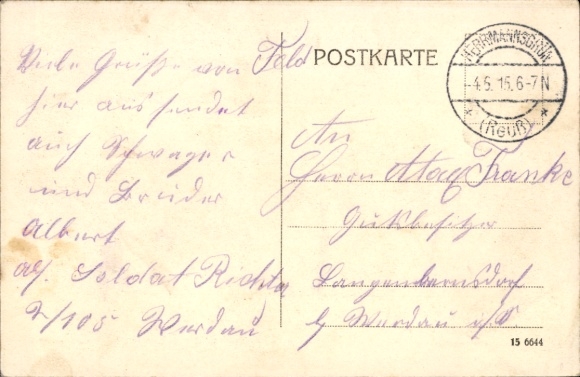 POSTKARTE
HERRMANNSGRÜN
4.5.15.6-7N
* (Reuß) *
Viele Grüße von Feld
hier aussendet
auch Schwager
und Bruder
Albert
Soldat Richter
/105 Werdau
An
Herrn Max Franke
Gutsbesitzer
Langenbernsdorf
b/ Werdau i/S.
15 6644